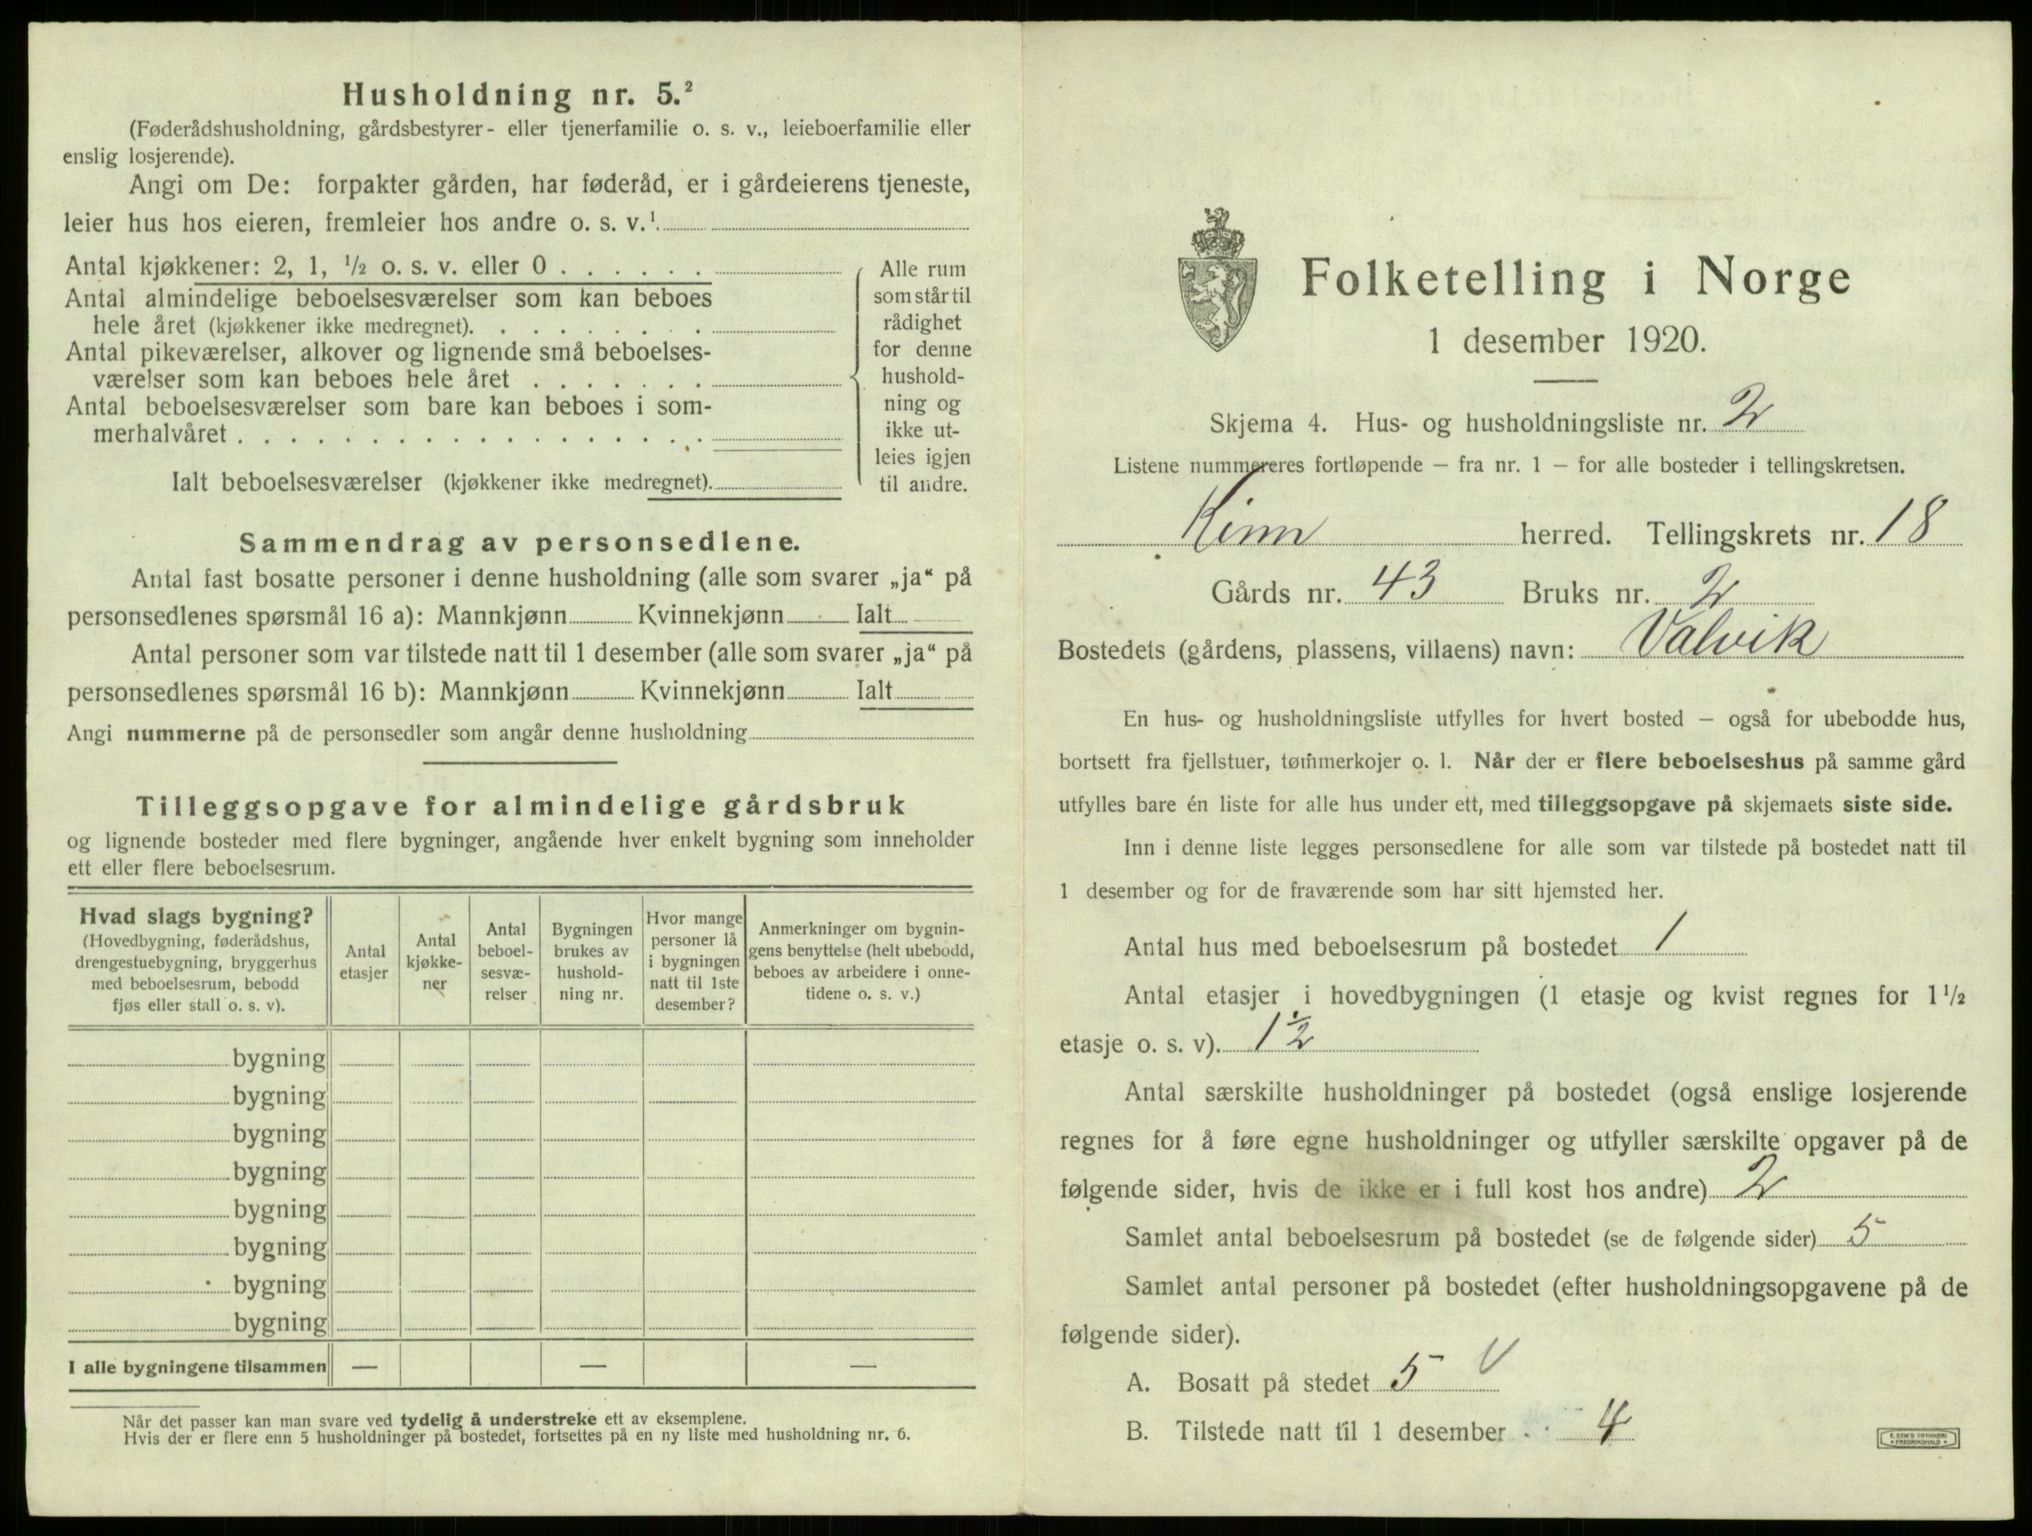 Husholdning nr. 5.²
(Føderådshusholdning, gårdsbestyrer- eller tjenerfamilie o. s. v., leieboerfamilie eller
enslig losjerende).
Angi om De: forpakter gården, har føderåd, er i gårdeierens tjeneste,
leier hus hos eieren, fremleier hos andre o. s. v.¹
Antal kjøkkener: 2, 1, ½ o. s. v. eller 0 . . . . . .
Antal almindelige beboelsesværelser som kan beboes
hele året (kjøkkener ikke medregnet). . . . . . . . .
Antal pikeværelser, alkover og lignende små beboelses-
værelser som kan beboes hele året . . . . . . .
Antal beboelsesværelser som bare kan beboes i som-
merhalvåret . . . . . . . . . . . . . . . . . .
Ialt beboelsesværelser (kjøkkener ikke medregnet).
Alle rum
som står til
rådighet
for denne
hushold-
ning og
ikke ut-
leies igjen
til andre.
Sammendrag av personsedlene.
Antal fast bosatte personer i denne husholdning (alle som svarer „ja“ på
personsedlenes spørsmål 16 a): Mannkjønn Kvinnekjønn Ialt
Antal personer som var tilstede natt til 1 desember (alle som svarer „ja“ på
personsedlenes spørsmål 16 b): Mannkjønn Kvinnekjønn Ialt
Angi nummerne på de personsedler som angår denne husholdning
Tilleggsopgave for almindelige gårdsbruk
og lignende bosteder med flere bygninger, angående hver enkelt bygning som inneholder
ett eller flere beboelsesrum.
Hvad slags bygning?
(Hovedbygning, føderådshus,
drengestuebygning, bryggerhus
med beboelsesrum, bebodd
fjøs eller stall o. s. v).
Antal
etasjer
Antal
kjøkke-
ner
Antal
beboel-
sesvæ-
relser
Bygningen
brukes av
hushold-
ning nr.
Hvor mange
personer lå
i bygningen
natt til 1ste
desember?
Anmerkninger om bygnin-
gens benyttelse (helt ubebodd,
beboes av arbeidere i onne-
tidene o. s. v.)
bygning
bygning
bygning
bygning
bygning
bygning
bygning
bygning
I alle bygningene tilsammen — — —
Når det passer kan man svare ved tydelig å understreke ett av eksemplene.
Hvis der er flere enn 5 husholdninger på bostedet, fortsettes på en ny liste med husholdning nr. 6.
Folketelling i Norge
1 desember 1920.
Skjema 4. Hus- og husholdningsliste nr. 2
Listene nummereres fortløpende – fra nr. 1 – for alle bosteder i tellingskretsen.
Kinn herred. Tellingskrets nr. 18
Gårds nr. 43 Bruks nr. 2
Bostedets (gårdens, plassens, villaens) navn: Valvik
En hus- og husholdningsliste utfylles for hvert bosted – også for ubebodde hus,
bortsett fra fjellstuer, tømmerkojer o. l. Når der er flere beboelseshus på samme gård
utfylles bare én liste for alle hus under ett, med tilleggsopgave på skjemaets siste side.
Inn i denne liste legges personsedlene for alle som var tilstede på bostedet natt til
1 desember og for de fraværende som har sitt hjemsted her.
Antal hus med beboelsesrum på bostedet 1
Antal etasjer i hovedbygningen (1 etasje og kvist regnes for 1½
etasje o. s. v). 1½
Antal særskilte husholdninger på bostedet (også enslige losjerende
regnes for å føre egne husholdninger og utfyller særskilte opgaver på de
følgende sider, hvis de ikke er i full kost hos andre) 2
Samlet antal beboelsesrum på bostedet (se de følgende sider) 5
Samlet antal personer på bostedet (efter husholdningsopgavene på de
følgende sider).
A. Bosatt på stedet 5 V
B. Tilstede natt til 1 desember . . 4
E. SEM'S TRYKKERI
FREDRIKSHALD